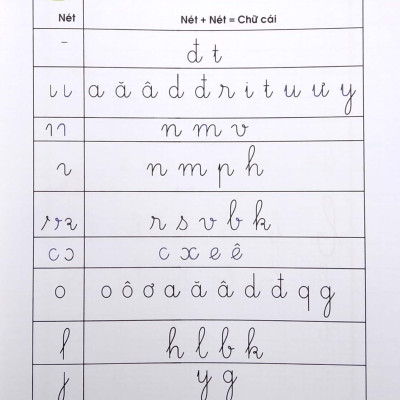 Nét Nét + Nét = Chữ cái
- đ t
ɩ ɩ a ă â d đ r i t u ư y
n m v
n m p h
r s v b k
c ɔ c x e ê
o o ô ơ a ă â d đ q g
l h l b k
j y g